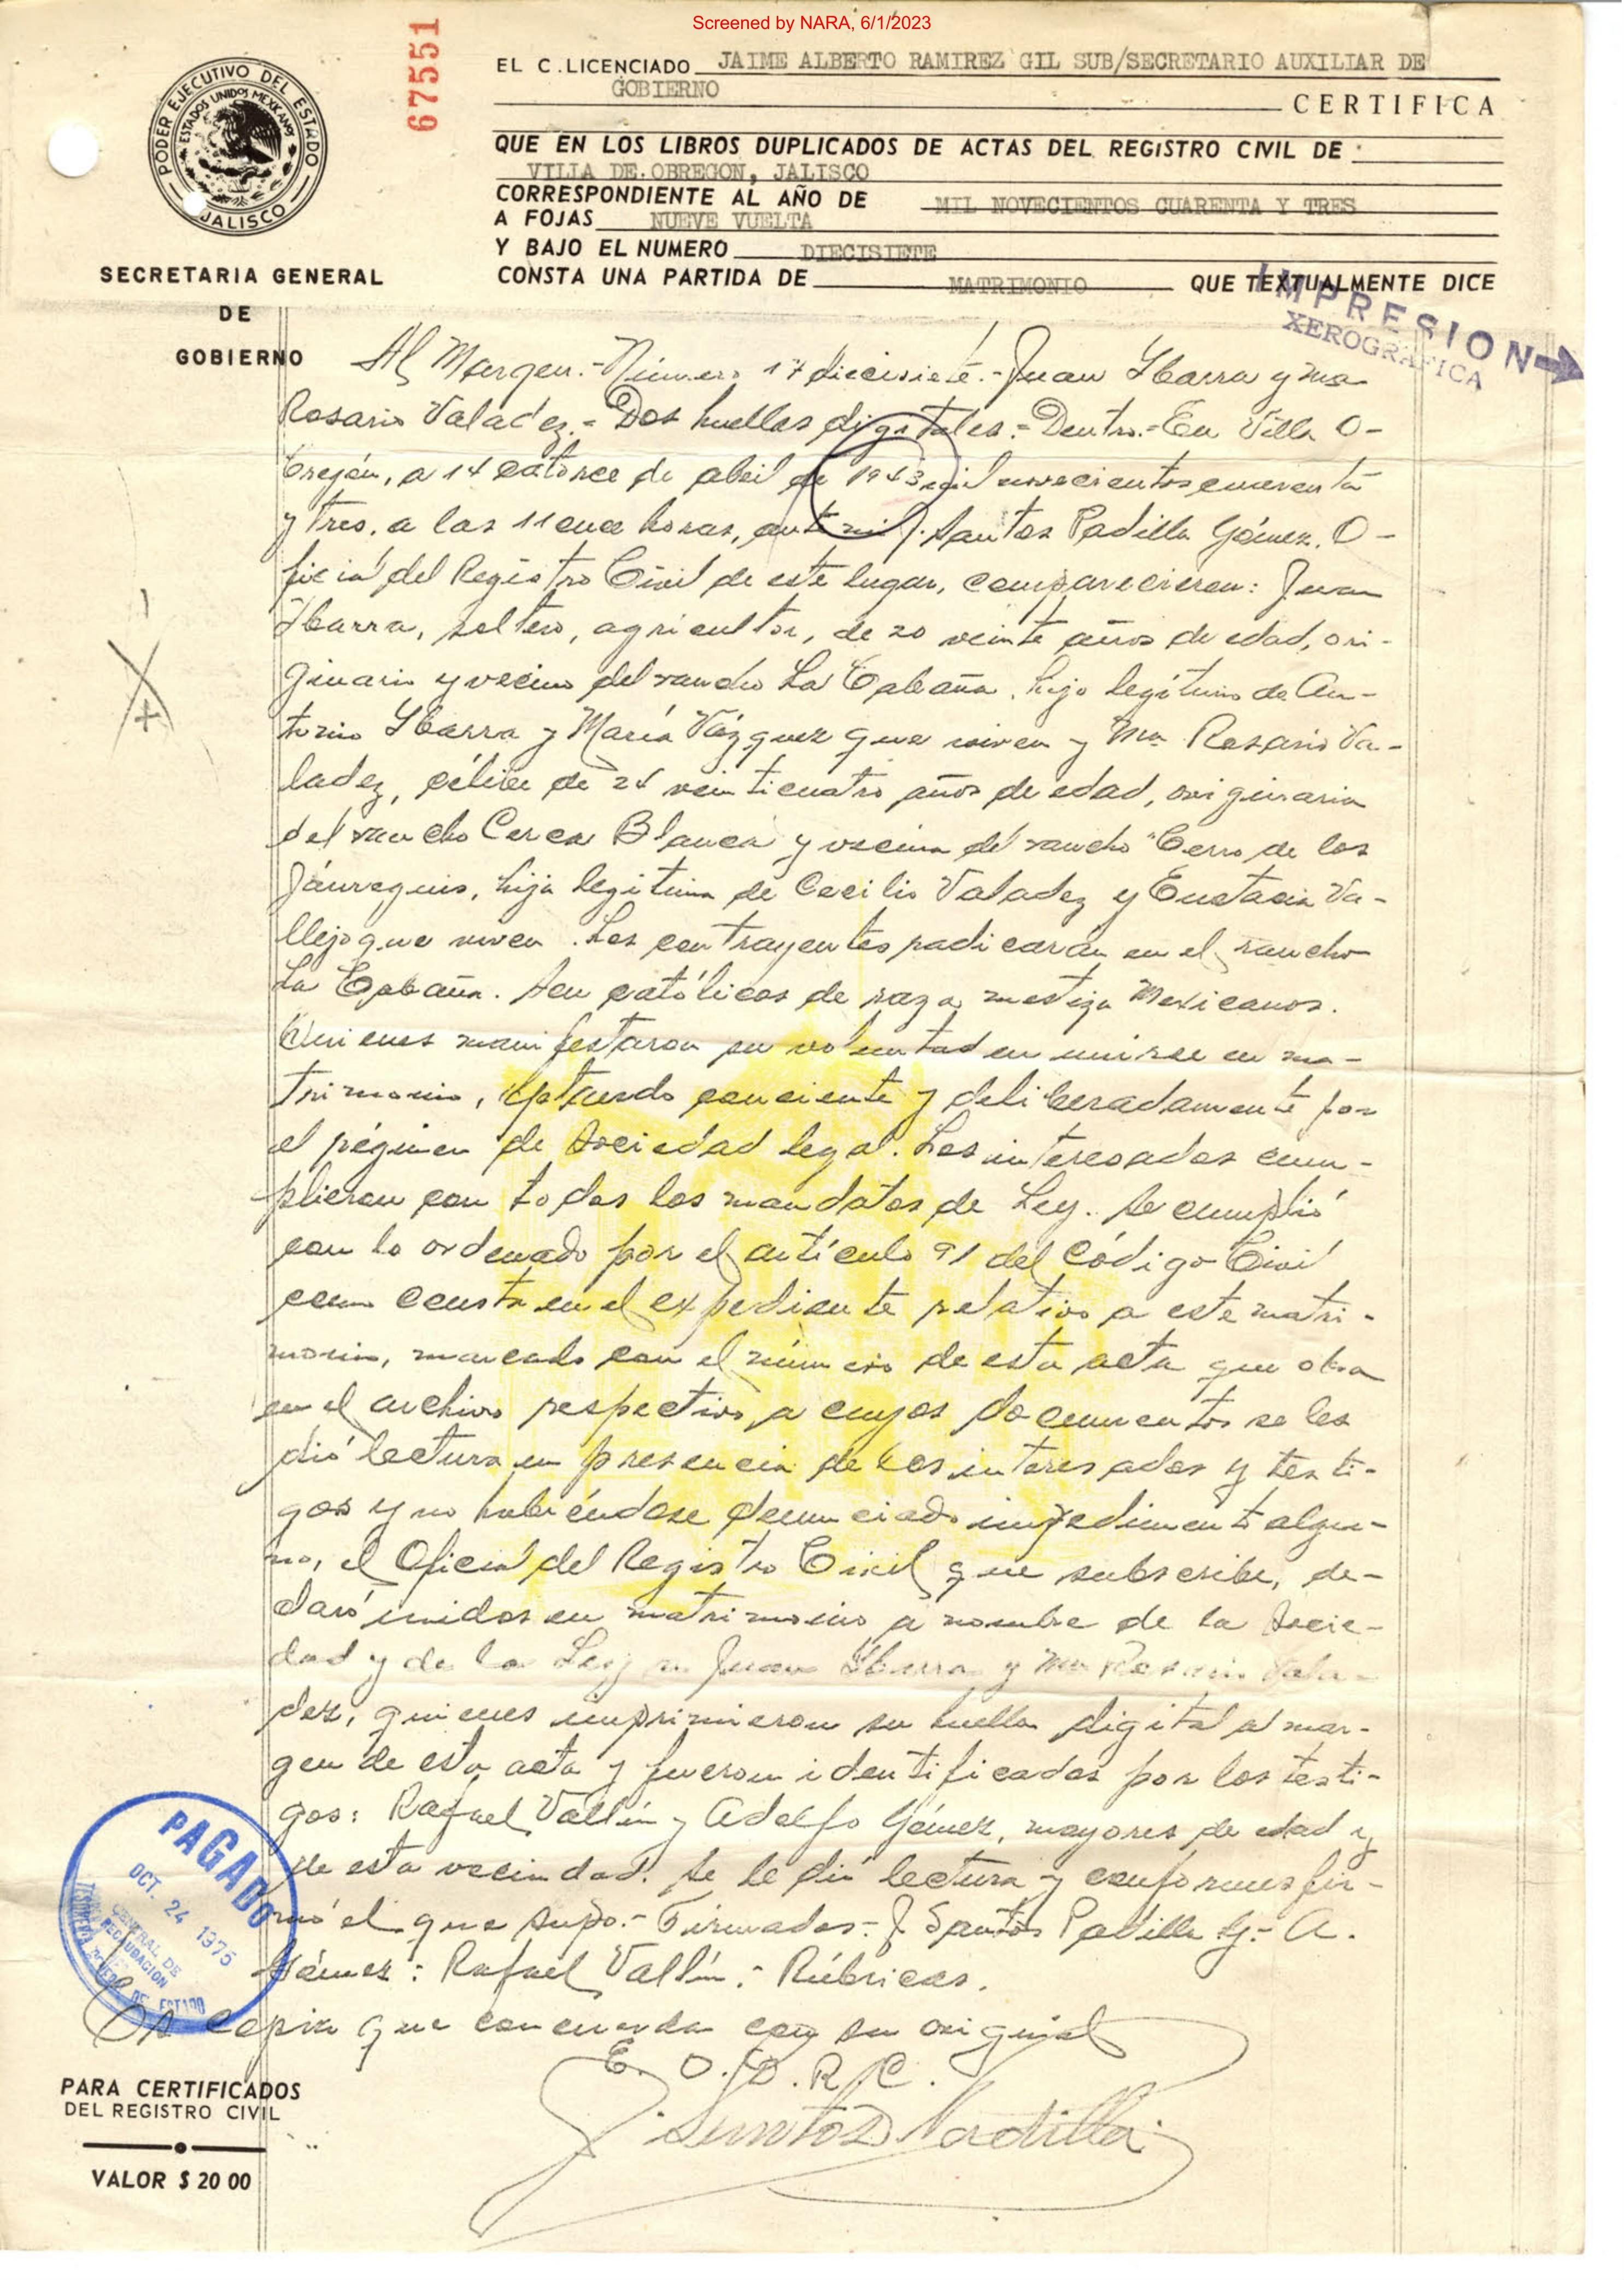 Screened by NARA, 6/1/2023
67551
PODER EJECUTIVO DEL ESTADO
ESTADOS UNIDOS MEXICANOS
JALISCO
SECRETARIA GENERAL
DE
GOBIERNO
EL C. LICENCIADO JAIME ALBERTO RAMIREZ GIL SUB/SECRETARIO AUXILIAR DE
GOBIERNO
CERTIFICA
QUE EN LOS LIBROS DUPLICADOS DE ACTAS DEL REGISTRO CIVIL DE
VILLA DE OBREGON, JALISCO
CORRESPONDIENTE AL AÑO DE MIL NOVECIENTOS CUARENTA Y TRES
A FOJAS NUEVE VUELTA
Y BAJO EL NUMERO DIECISIETE
CONSTA UNA PARTIDA DE MATRIMONIO QUE TEXTUALMENTE DICE
IMPRESION
XEROGRAFICA
Al Margen.- Número 17 diecisiete.- Juan Ybarra y Ma
Rosario Valadez.- Dos huellas digitales.- Dentro.- En Villa O-
bregón, a 14 catorce de abril de 1943 mil novecientos cuarenta
y tres, a las 11 once horas, ante mí J. Santos Padilla Gómez, O-
ficial del Registro Civil de este lugar, comparecieron: Juan
Ybarra, soltero, agricultor, de 20 veinte años de edad, ori-
ginario y vecino del rancho La Cabaña, hijo legítimo de An-
tonio Ybarra y María Vázquez que viven y Ma Rosario Va-
ladez, célibe de 24 veinticuatro años de edad, originaria
del rancho Cerca Blanca y vecina del rancho Cerro de los
Jáureguis, hija legitima de Cecilio Valadez y Eustacia Va-
llejo que viven. Los contrayentes radicarán en el rancho
La Cabaña. Son católicos de raza mestiza Mexicanos.
Quienes manifestaron su voluntad en unirse en ma-
trimonio, optando conciente y deliberadamente por
el régimen de Sociedad legal. Los interesados cum-
plieron con todos los mandatos de Ley. Se cumplió
con lo ordenado por el artículo 91 del Código Civil
como consta en el expediente relativo a este matri-
monio, marcado con el número de esta acta que obra
en el archivo respectivo a cuyos documentos se les
dió lectura en presencia de los interesados y testi-
gos y no habiéndose denunciado impedimento algu-
no, el Oficial del Registro Civil que subscribe, de-
claró unidos en matrimonio a nombre de la Socie-
dad y de la Ley a Juan Ybarra y Ma Rosario Vala-
dez, quienes imprimieron su huella digital al mar-
gen de esta acta y fueron identificados por los testi-
gos: Rafael Vallín y Adolfo Gómez, mayores de edad y
de esta vecindad. Se le dió lectura y conformes fir-
mó el que supo.- Firmados.- J Santos Padilla G.- A.
Gómez.- Rafael Vallín.- Rúbricas.
Es copia que concuerda con su original
E. O. D. R. C.
J. Santos Padilla
PAGADO
OCT. 24 1975
CENTRAL DE
RECAUDACION
PARA CERTIFICADOS
DEL REGISTRO CIVIL
VALOR $ 20 00